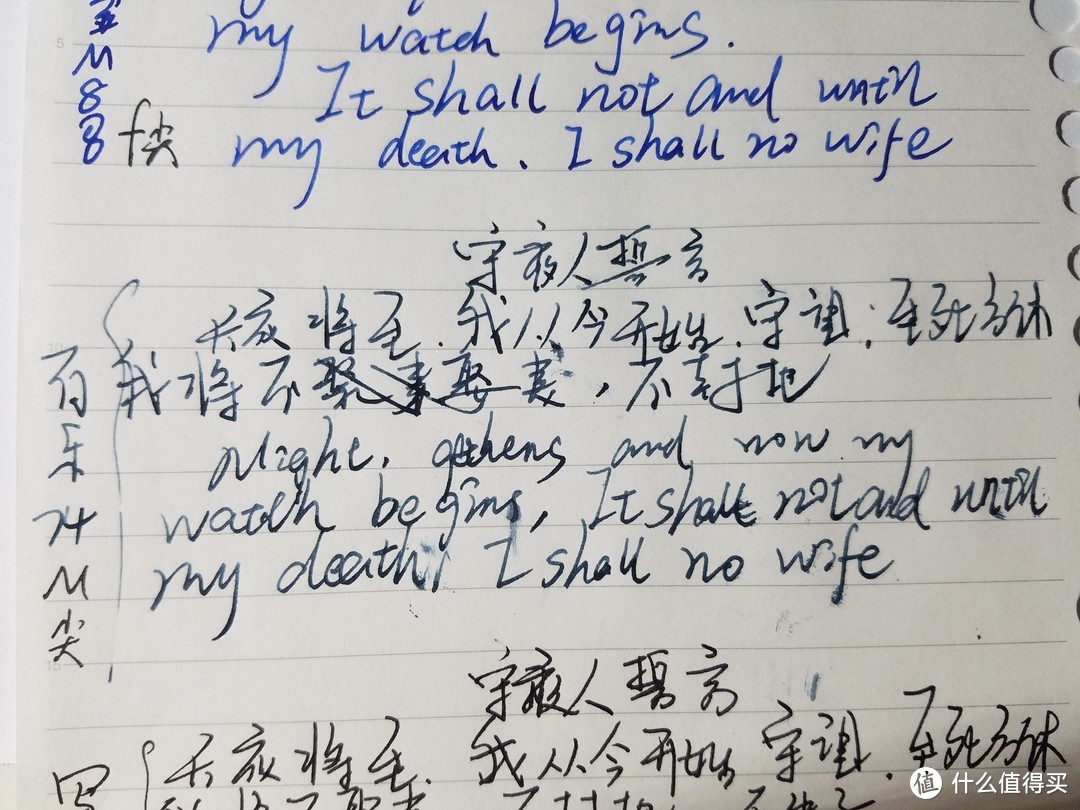 my watch begins.
It shall not and until
M88 f尖 my death. I shall no wife
守夜人誓言
长夜将至.我从今开始.守望.至死方休
我将不娶妻,不封地
Night. gathens and now my
watch begins, It shall not and until
my death, I shall no wife
百乐74M尖
守夜人誓言
长夜将至.我从今开始.守望.至死方休
写
值 什么值得买